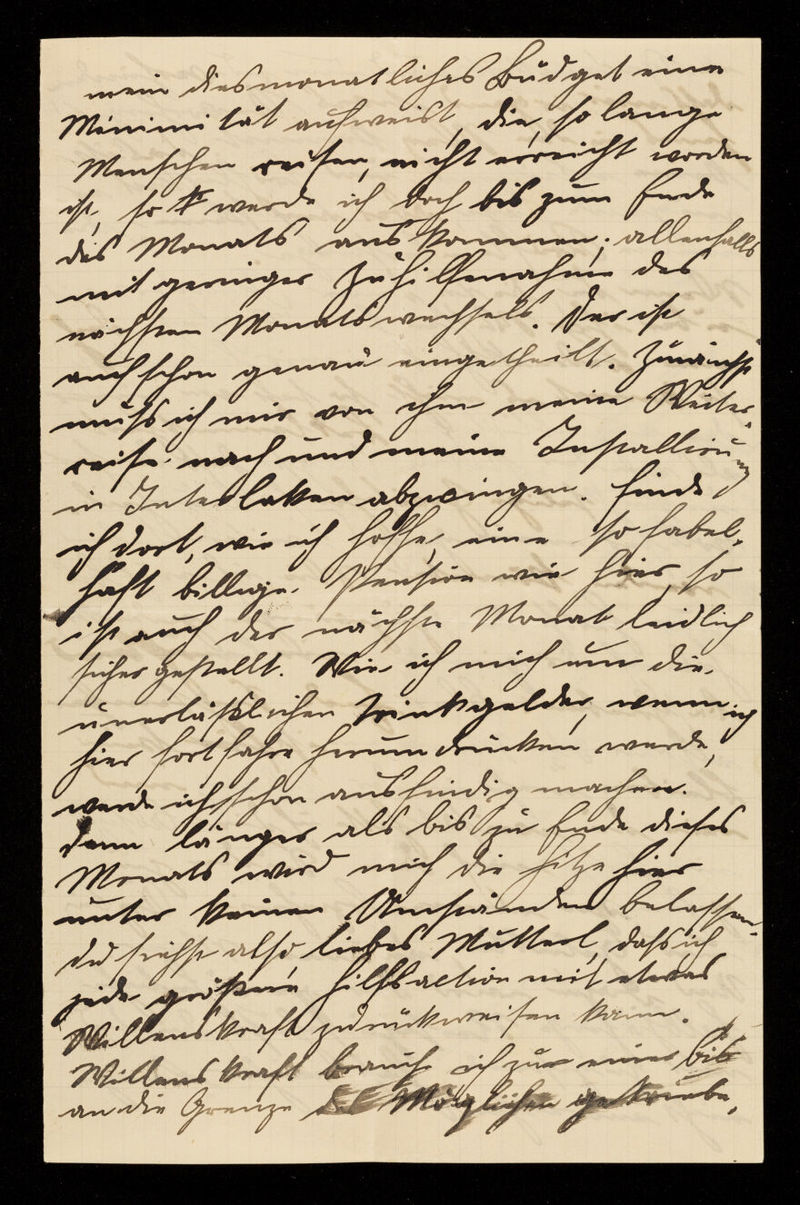 mein diesmonatliches Büdget eine
Minimität aufweist, die, so lange
Menschen reisen, nicht erreicht worden
ist, so werde ich doch bis zum Ende
des Monats auskommen; allenfalls
mit geringer Zuhilfenahme des
nächsten Monatswechsels. Der ist
auch schon genau eingetheilt. Zunächst
muß ich mir von ihm meine Weiter-
reise nach und meine Installirung
in Interlaken abzwingen. Finde
ich dort, wie ich hoffe, eine so fabel-
haft billige Pension wie hier, so
ist auch der nächste Monat leidlich
sicher gestellt. Wie ich mich um die
unerläßlichen Trinkgelder, wenn ich
hier fortfahre herumdrücken werde,
werde ich schon ausfindig machen.
Denn länger als bis zu Ende dieses
Monats wird mich die Hitze hier
unter keinen Umständen belassen.
Du siehst also, liebes Mutterl, dass ich
jede größere Hilfsaction mit etwas
Willenskraft zurückweisen kann.
Willenskraft brauch ich zu einer bis
an die Grenze des Möglichen getriebe-